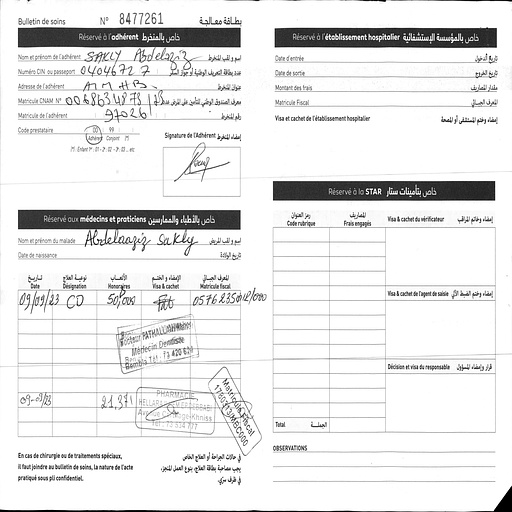 Bulletin de soins N° 8477261 بطاقة معالجة
Réservé à l'adhérent خاص بالمنخرط
Nom et prénom de l'adhérent SAKLY Abdelaziz إسم و لقب المنخرط
Numéro CIN ou passeport 04046727 عدد بطاقة التعريف الوطنية أو جواز السفر
Adresse de l'adhérent عنوان المنخرط
Matricule CNAM N°
Matricule de l'adhérent 97026 رقم المنخرط
Code prestataire 00 99
Adhérent Conjoint
Signature de l'Adhérent إمضاء المنخرط
Réservé aux médecins et praticiens خاص بالأطباء والممارسين
Nom et prénom du malade Abdelaaziz sakly اسم و لقب المريض
Date de naissance تاريخ الولادة
تاريخ نوعية العلاج الأتعاب الإمضاء و الختم المعرف الجبائي
Date Désignation Honoraires Visa & cachet Matricule fiscal
09/09/23 CD 50,000
Médecin Dentiste
21,371
PHARMACIE
Matricule Fiscal
En cas de chirurgie ou traitements spéciaux,
il faut joindre au bulletin de soins, la nature de l'acte
pratiqué sous pli confidentiel.
في حالات الجراحة أو العلاج الخاص
يجب مصاحبة بطاقة العلاج، بنوع العمل المنجز،
في ظرف سري.
Réservé à l'établissement hospitalier خاص بالمؤسسة الإستشفائية
Date d'entrée تاريخ الدخول
Date de sortie تاريخ الخروج
Montant des frais مقدار المصاريف
Matricule Fiscal المعرف الجبائي
Visa et cachet de l'établissement hospitalier إمضاء وختم المستشفى أو المصحة
Réservé à la STAR خاص بتأمينات ستار
رمز العنوان المصاريف
Code rubrique Frais engagés
Visa & cachet du vérificateur إمضاء وخاتم المراقب
Visa & cachet de l'agent de saisie
Décision et visa du responsable قرار وإمضاء المسؤول
Total الجملة
OBSERVATIONS